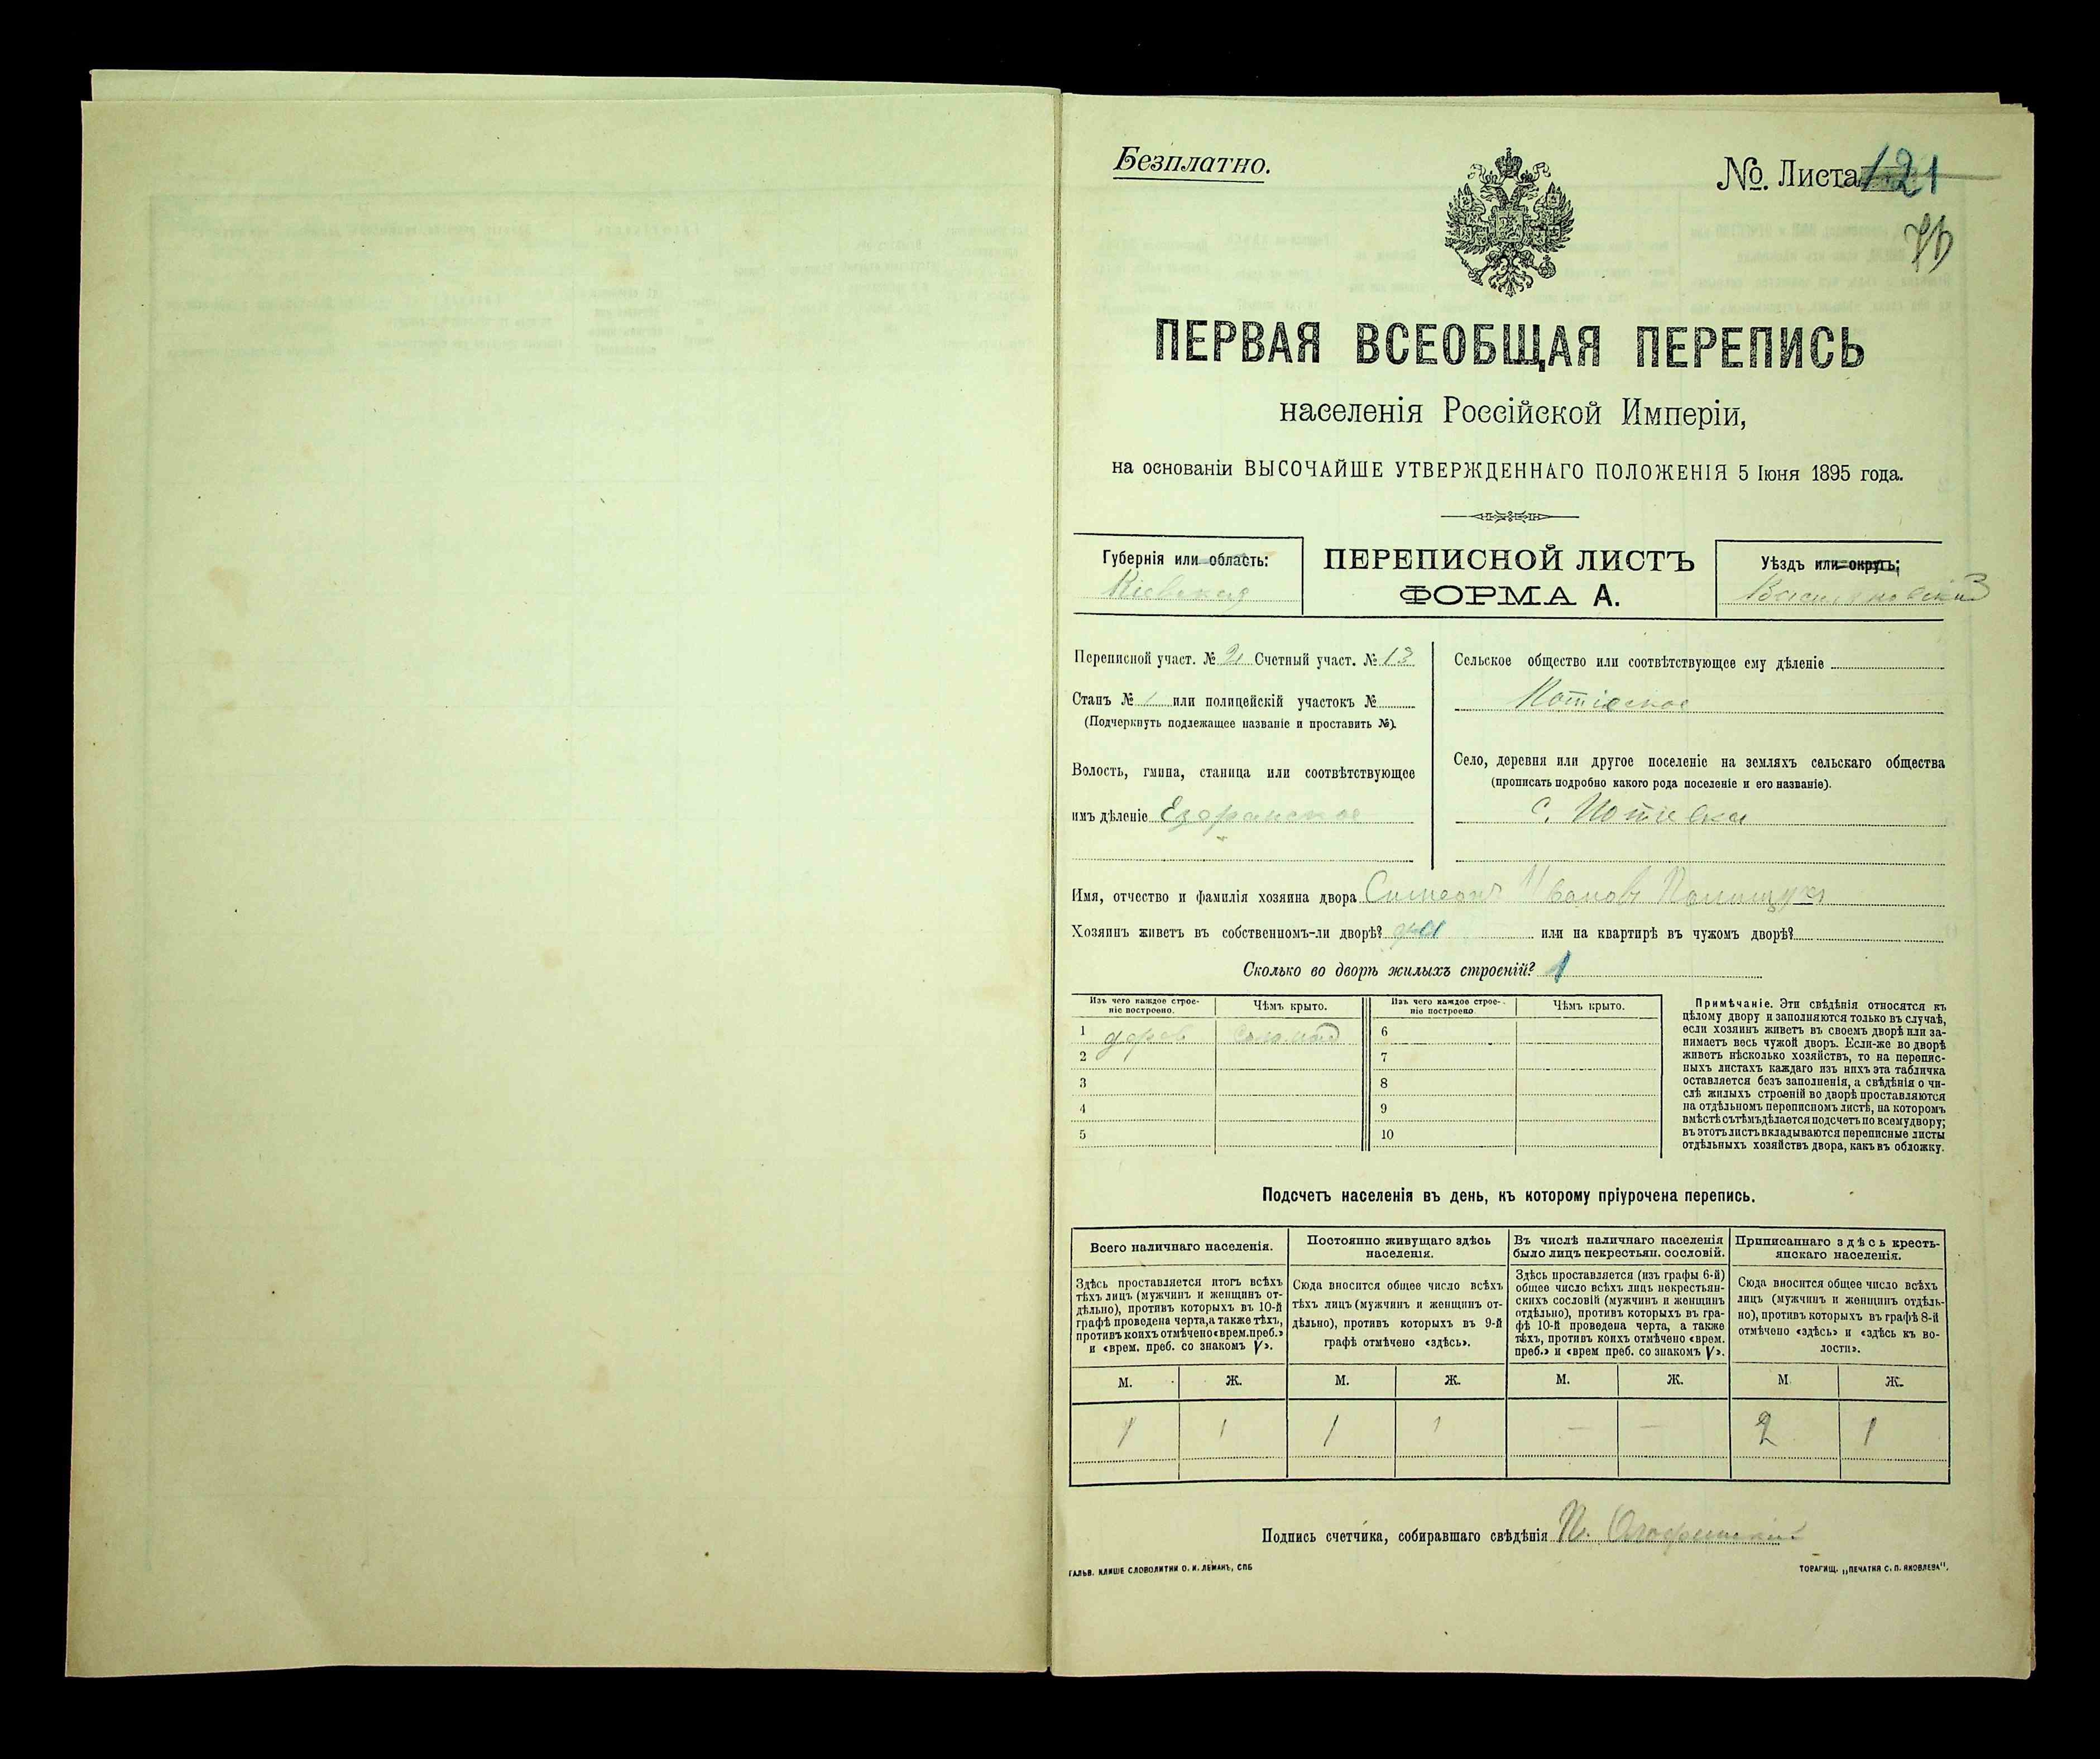 Безплатно.
№. Листа 121
ПЕРВАЯ ВСЕОБЩАЯ ПЕРЕПИСЬ
населенія Россійской Имперіи,
на основаніи ВЫСОЧАЙШЕ УТВЕРЖДЕННАГО ПОЛОЖЕНІЯ 5 Іюня 1895 года.
Губернія или область:
Кіевская
ПЕРЕПИСНОЙ ЛИСТЪ
ФОРМА А.
Уѣздъ или округъ:
Васильковскій
Переписной участ. № 2 Счетный участ. № 13
Станъ № 1 или полицейскій участокъ №
(Подчеркнуть подлежащее названіе и проставить №).
Волость, гмина, станица или соотвѣтствующее
имъ дѣленіе Езерянское
Сельское общество или соотвѣтствующее ему дѣленіе
Потіевское
Село, деревня или другое поселеніе на земляхъ сельскаго общества
(прописать подробно какого рода поселеніе и его названіе).
с. Потіевка
Имя, отчество и фамилія хозяина двора Симеонъ Ивановъ Полищукъ
Хозяинъ живетъ въ собственномъ-ли дворѣ? да или на квартирѣ въ чужомъ дворѣ?
Сколько во дворѣ жилыхъ строеній? 1
Изъ чего каждое строе-
ніе построено.
Чѣмъ крыто.
Изъ чего каждое строе-
ніе построено
Чѣмъ крыто.
1 дерев Соломой 6
2 7
3 8
4 9
5 10
Примѣчаніе. Эти свѣдѣнія относятся къ
цѣлому двору и заполняются только въ случаѣ,
если хозяинъ живетъ въ своемъ дворѣ или за-
нимаетъ весь чужой дворъ. Если-же во дворѣ
живетъ нѣсколько хозяйствъ, то на перепис-
ныхъ листахъ каждаго изъ нихъ эта табличка
оставляется безъ заполненія, а свѣдѣнія о чи-
слѣ жилыхъ строеній во дворѣ проставляются
на отдѣльномъ переписномъ листѣ, на которомъ
вмѣстѣ съ тѣмъ дѣлается подсчетъ по всему двору;
въ этотъ листъ вкладываются переписные листы
отдѣльныхъ хозяйствъ двора, какъ въ обложку.
Подсчетъ населенія въ день, къ которому пріурочена перепись.
Всего наличнаго населенія.
Здѣсь проставляется итогъ всѣхъ
тѣхъ лицъ (мужчинъ и женщинъ от-
дѣльно), противъ которыхъ въ 10-й
графѣ проведена черта, а также тѣхъ,
противъ коихъ отмѣчено «врем. преб.»
и «врем. преб. со знакомъ V».
Постоянно живущаго здѣсь
населенія.
Сюда вносится общее число всѣхъ
тѣхъ лицъ (мужчинъ и женщинъ от-
дѣльно), противъ которыхъ въ 9-й
графѣ отмѣчено «здѣсь».
Въ числѣ наличнаго населенія
было лицъ некрестьян. сословій.
Здѣсь проставляется (изъ графы 6-й)
общее число всѣхъ лицъ некрестьян-
скихъ сословій (мужчинъ и женщинъ
отдѣльно), противъ которыхъ въ гра-
фѣ 10-й проведена черта, а также
тѣхъ, противъ коихъ отмѣчено «врем.
преб.» и «врем преб. со знакомъ V».
Приписаннаго здѣсь кресть-
янскаго населенія.
Сюда вносится общее число всѣхъ
лицъ (мужчинъ и женщинъ отдѣль-
но), противъ которыхъ въ графѣ 8-й
отмѣчено «здѣсь» и «здѣсь къ во-
лости».
М. Ж. М. Ж. М. Ж. М. Ж.
1 1 1 1 — — 2 1
Подпись счетчика, собиравшаго свѣдѣнія
ГАЛЬВ. КЛИШЕ СЛОВОЛИТНИ О. И. ЛЕМАНЪ, СПБ
ТОРАГИЩ. „ПЕЧАТНЯ С. П. ЯКОВЛЕВА“.